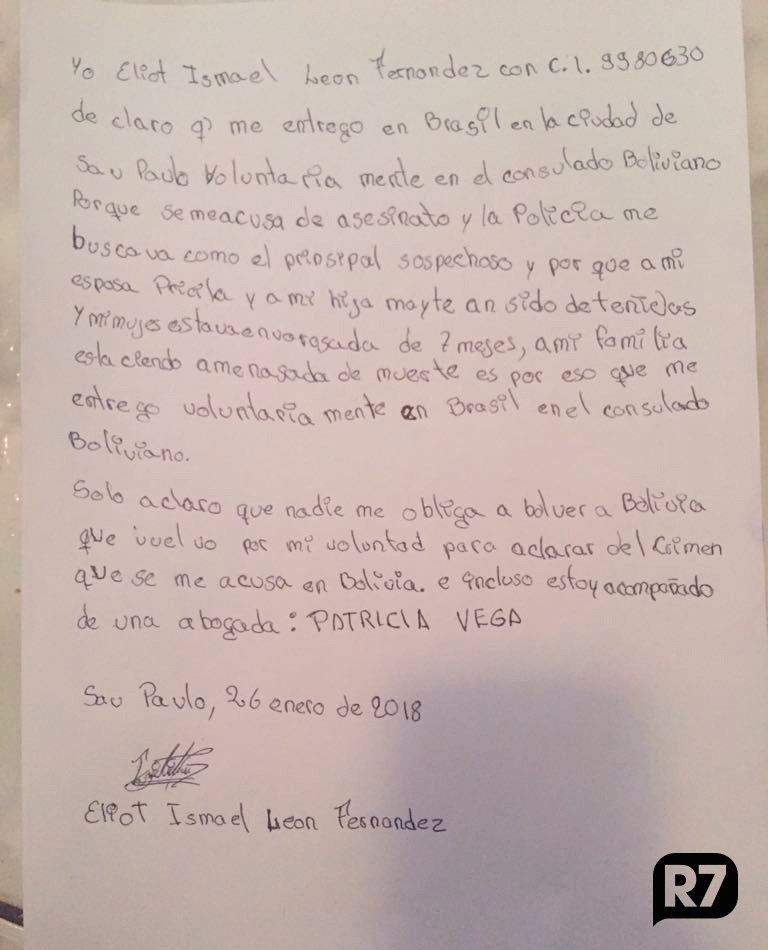 Yo Eliot Ismael Leon Fernandez con C.I. 9980630
de claro q' me entrego en Brasil en la ciudad de
Sau Paulo Voluntaria mente en el consulado Boliviano
Porque se me acusa de asesinato y la Policia me
buscava como el prinsipal sospechoso y por que a mi
esposa Pricila y a mi hija mayte an sido detenidas
Y mi mujes estava envorasada de 7 meses, a mi familia
esta ciendo amenasada de mueste es por eso que me
entrego voluntaria mente en Brasil en el consulado
Boliviano.
Solo aclaro que nadie me obliga a bolver a Bolivia
que vuelvo por mi voluntad para aclarar del Crimen
que se me acusa en Bolivia. e incluso estoy acompañado
de una abogada: PATRICIA VEGA
Sau Paulo, 26 enero de 2018
Eliot Ismael Leon Fernandez
R7